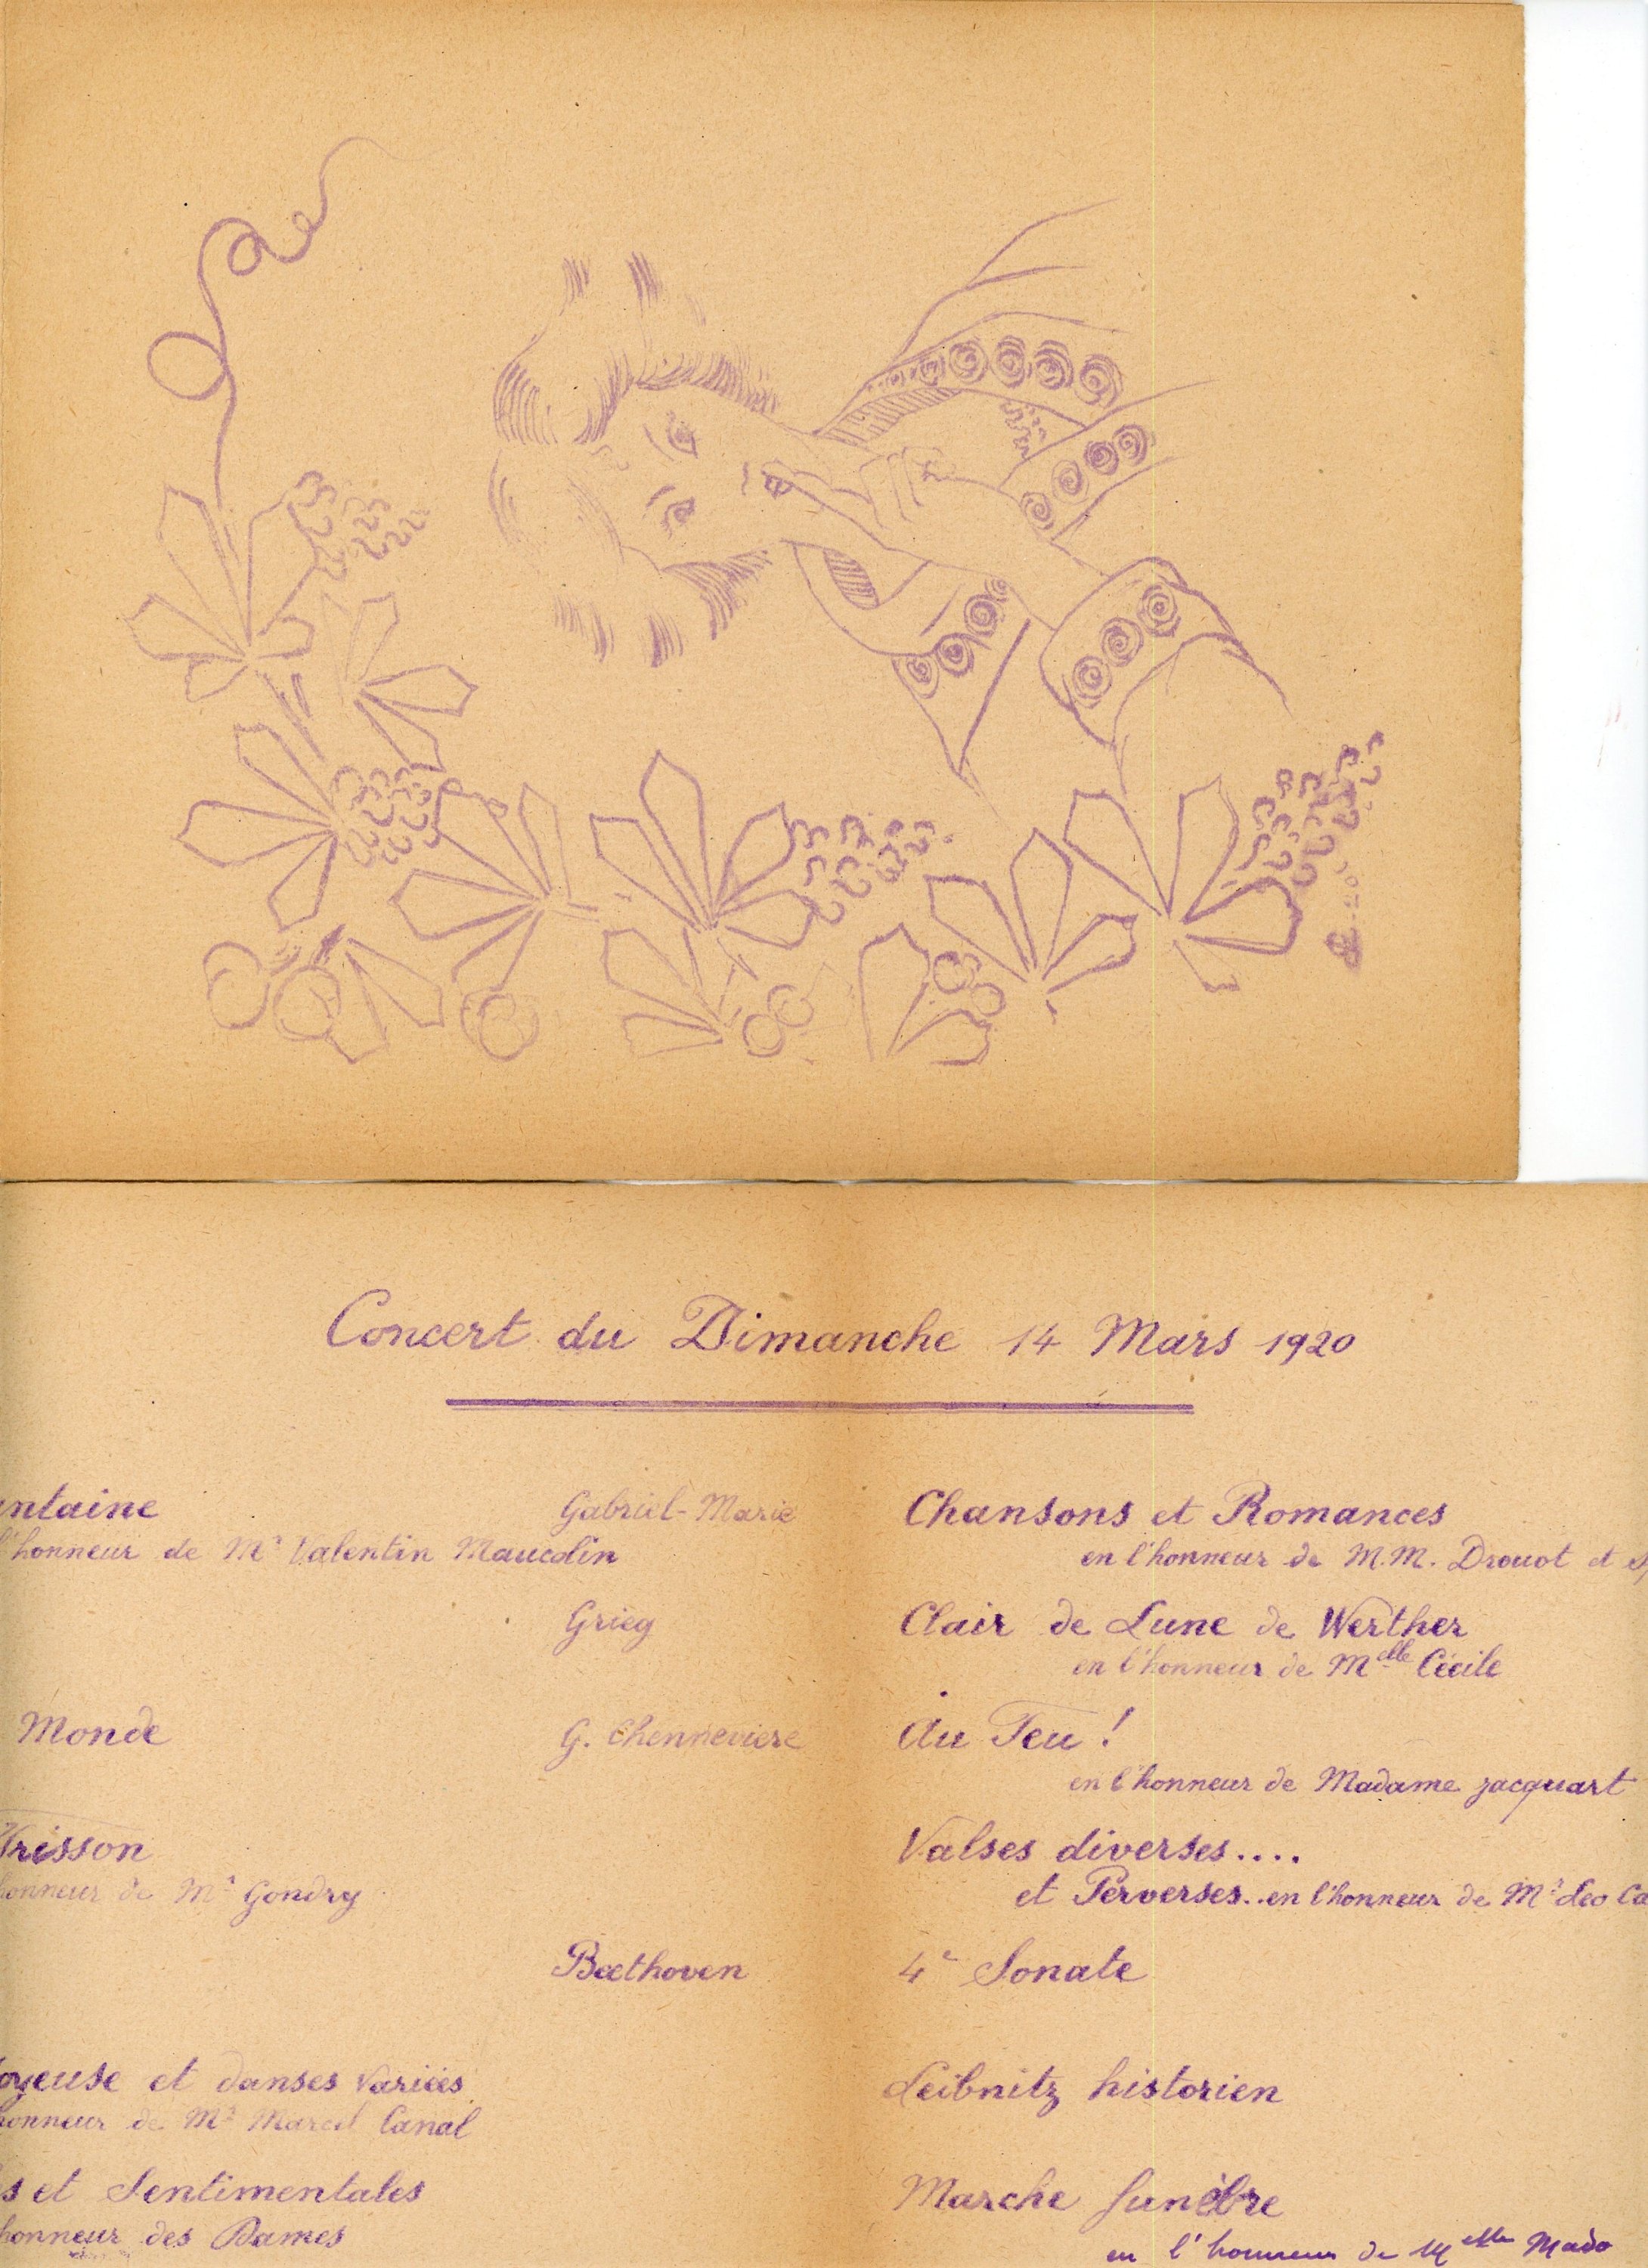 Concert du Dimanche 14 Mars 1920
ntaine Gabriel-Marie
l'honneur de Mr Valentin Maucolin
Grieg
Monde G. Chennevière
Frisson
honneur de Mr Gondry
Beethoven
oyeuse et danses variées
honneur de Mr Marcel Canal
s et Sentimentales
honneur des Dames
Chansons et Romances
en l'honneur de M.M. Drouot et
Clair de Lune de Werther
en l'honneur de Melle Cécile
Au Feu !
en l'honneur de Madame Jacquart
Valses diverses....
et Perverses..en l'honneur de Mr Leo Ca
4e Sonate
Leibnitz historien
Marche funèbre
en l'honneur de Melle Mado